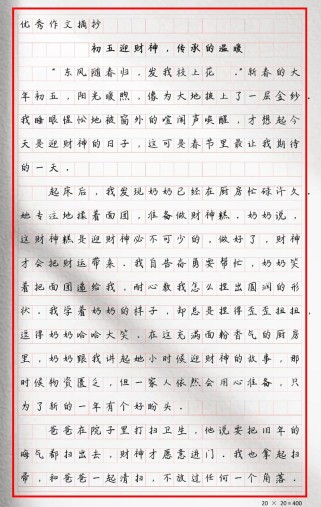 优秀作文摘抄
初五迎财神，传承的温暖
“东风随春归，发我枝上花.”新春的大
年初五，阳光暖煦，像为大地披上了一层金纱.
我睡眼惺忪地被窗外的喧闹声唤醒，才想起今
天是迎财神的日子，这可是春节里最让我期待
的一天.
起床后，我发现奶奶已经在厨房忙碌许久.
她专注地揉着面团，准备做财神糕.奶奶说，
这财神糕是迎财神必不可少的.做好了，财神
才会把财运带来.我自告奋勇要帮忙，奶奶笑
着把面团递给我，耐心教我怎么捏出圆润的形
状.我学着奶奶的样子，却总是捏得歪歪扭扭，
逗得奶奶哈哈大笑.在这充满面粉香气的厨房
里，奶奶跟我讲起她小时候迎财神的故事，那
时候物资匮乏，但一家人依然会用心准备，只
为了新的一年有个好盼头.
爸爸在院子里打扫卫生，他说要把旧年的
晦气都扫出去，财神才愿意进门.我也拿起扫
帚，和爸爸一起清扫，不放过任何一个角落.
20 × 20=400